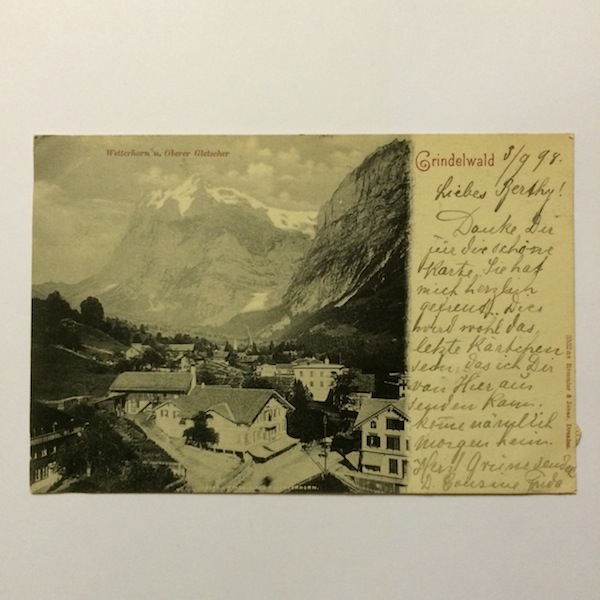 Wetterhorn u. Oberer Gletscher
Grindelwald 3/9 98.
Liebes Berthy!
Danke Dir
für die schöne
Karte, Sie hat
mich herzlich
gefreut. Dies
wird wohl das
letzte Kärtchen
sein, das ich Dir
von Hier aus
senden kann.
Kome nämlich
morgen heim.
Herzl Grüsse sendet
D. Cousine Frida
& Jonas, Dresden